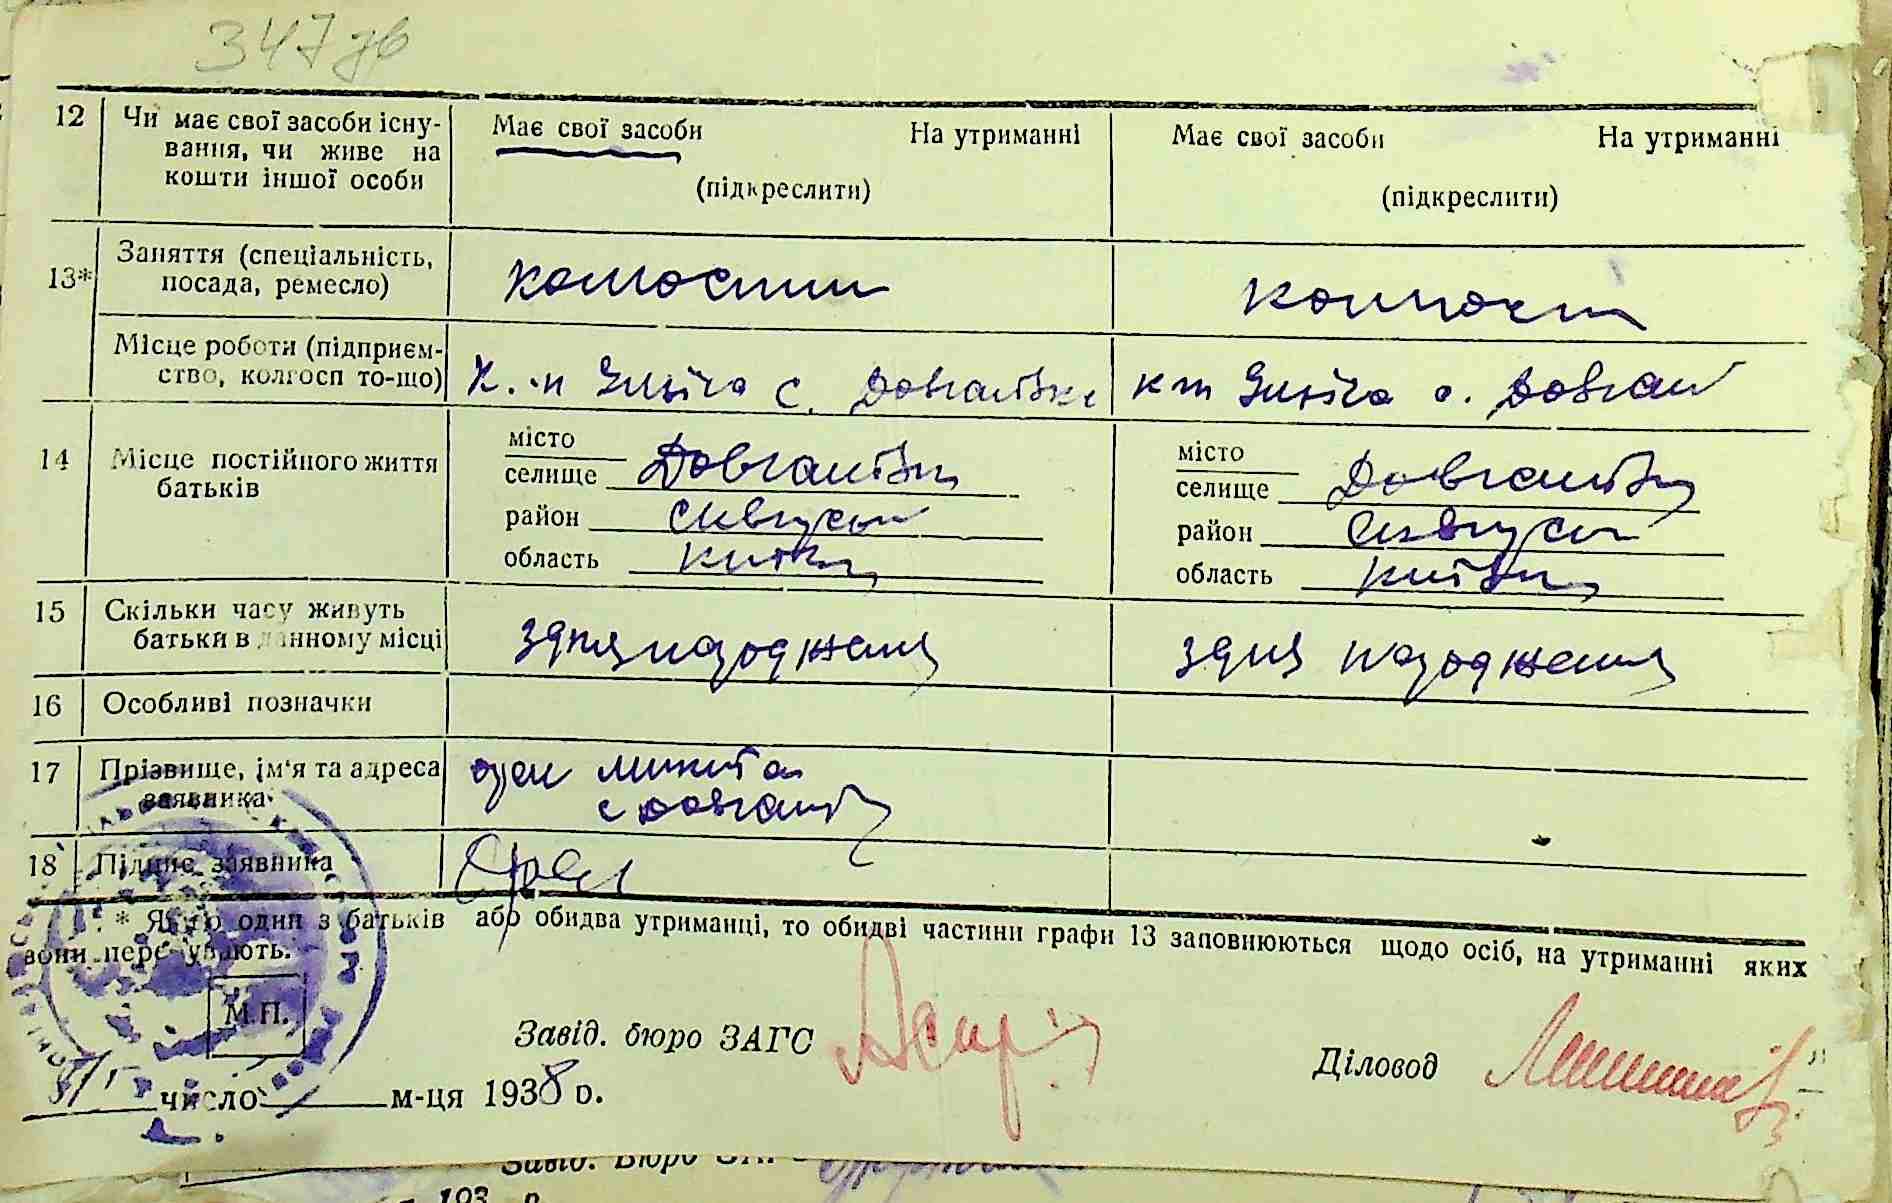 347 зв
12 Чи має свої засоби існу-
вання, чи живе на
кошти іншої особи
Має свої засоби На утриманні
(підкреслити)
Має свої засоби На утриманні
(підкреслити)
13* Заняття (спеціальність,
посада, ремесло)
Місце роботи (підприєм-
ство, колгосп то-що)
с. Довгалівка
14 Місце постійного життя
батьків
місто
селище Довгалівка
район Сквирськ
область Київська
місто
селище Довгалівка
район Сквирськ
область Київська
15 Скільки часу живуть
батьки в данному місці
здня народження
здня народження
16 Особливі позначки
17 Прізвище, ім'я та адреса
заявника
Микита
с Довгалів
18 Підпис заявника
* Якщо один з батьків або обидва утриманці, то обидві частини графи 13 заповнюються щодо осіб, на утриманні яких
вони перебувають.
М.П.
Завід. бюро ЗАГС
Діловод
число м-ця 1938 р.
Завід. Бюро ЗАГС
193 р.